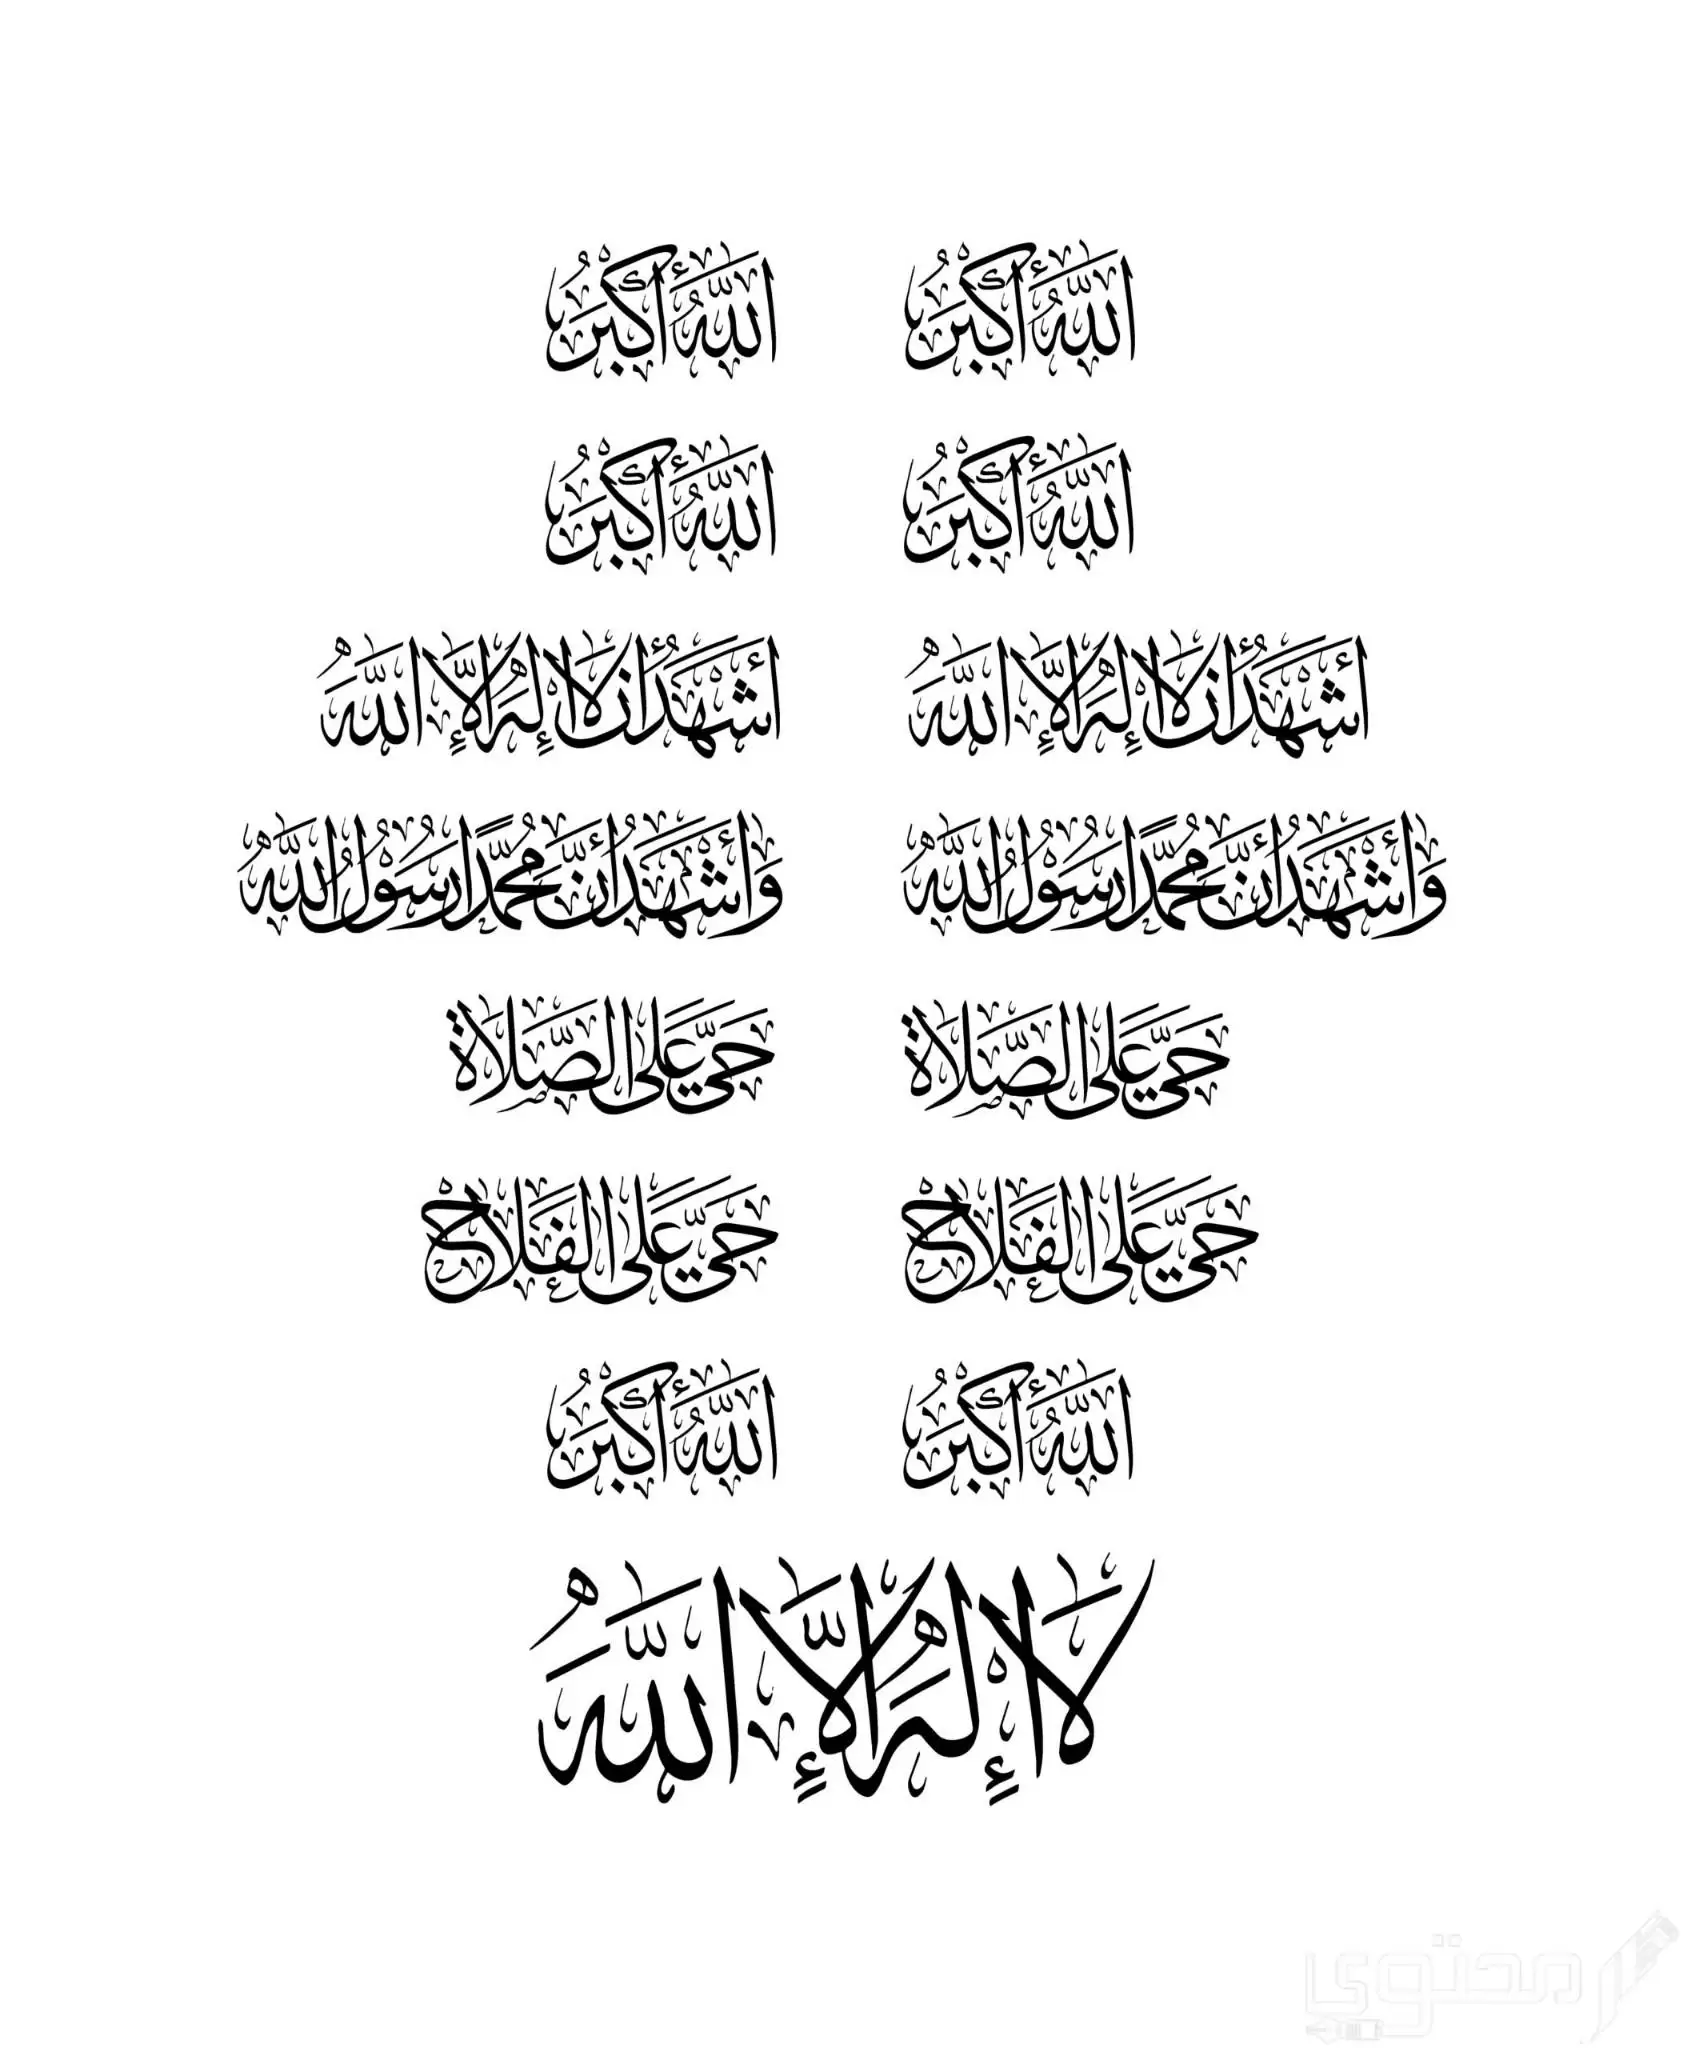 اللهُ أَكْبَرُ اللهُ أَكْبَرُ
اللهُ أَكْبَرُ اللهُ أَكْبَرُ
أَشْهَدُ أَنْ لَا إِلٰهَ إِلَّا اللَّهُ أَشْهَدُ أَنْ لَا إِلٰهَ إِلَّا اللَّهُ
وَأَشْهَدُ أَنَّ مُحَمَّدًا رَسُولُ اللَّهِ وَأَشْهَدُ أَنَّ مُحَمَّدًا رَسُولُ اللَّهِ
حَيَّ عَلَى الصَّلَاة حَيَّ عَلَى الصَّلَاة
حَيَّ عَلَى الفَلَاح حَيَّ عَلَى الفَلَاح
اللهُ أَكْبَرُ اللهُ أَكْبَرُ
لَا إِلٰهَ إِلَّا اللَّهُ
محتوى